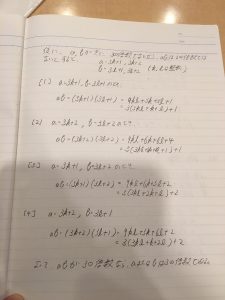 仮に、a, bが共に 3の倍数でない
ないとすると
a = 3k+1, 3k+2
b = 3l+1, 3l+2 (k, lは整数)
[1] a=3k+1, b=3l+1のとき
ab=(3k+1)(3l+1) = 9kl+3k+3l+1
= 3(3kl+k+l)+1
[2] a=3k+2, b=3l+2のとき
ab=(3k+2)(3l+2) = 9kl+6k+6l+4
= 3(3kl+2k+2l+1)+1
[3] a=3k+1, b=3l+2のとき
ab=(3k+1)(3l+2) = 9kl+6k+3l+2
= 3(3kl+2k+l)+2
[4] a=3k+2, b=3l+1
ab=(3k+2)(3l+1) = 9kl+3k+6l+2
= 3(3kl+k+2l)+2
よって abが3の倍数なら、aまたはbは3の倍数である